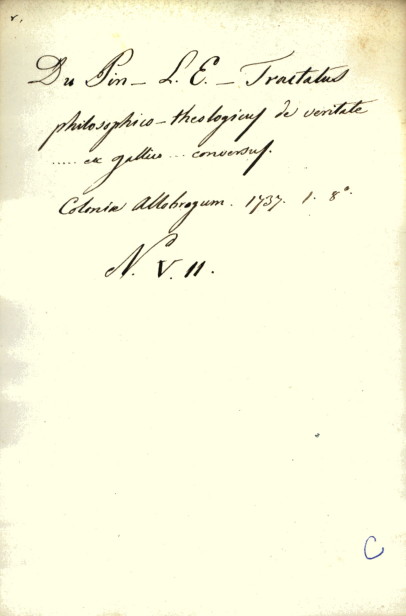 Du Pin – L. E. – Tractatus
philosophico – theologicus de veritate
..... ex gallico ... conversus.
Coloniæ Allobrogum. 1737. 1. 8°.
N. V. 11.
C